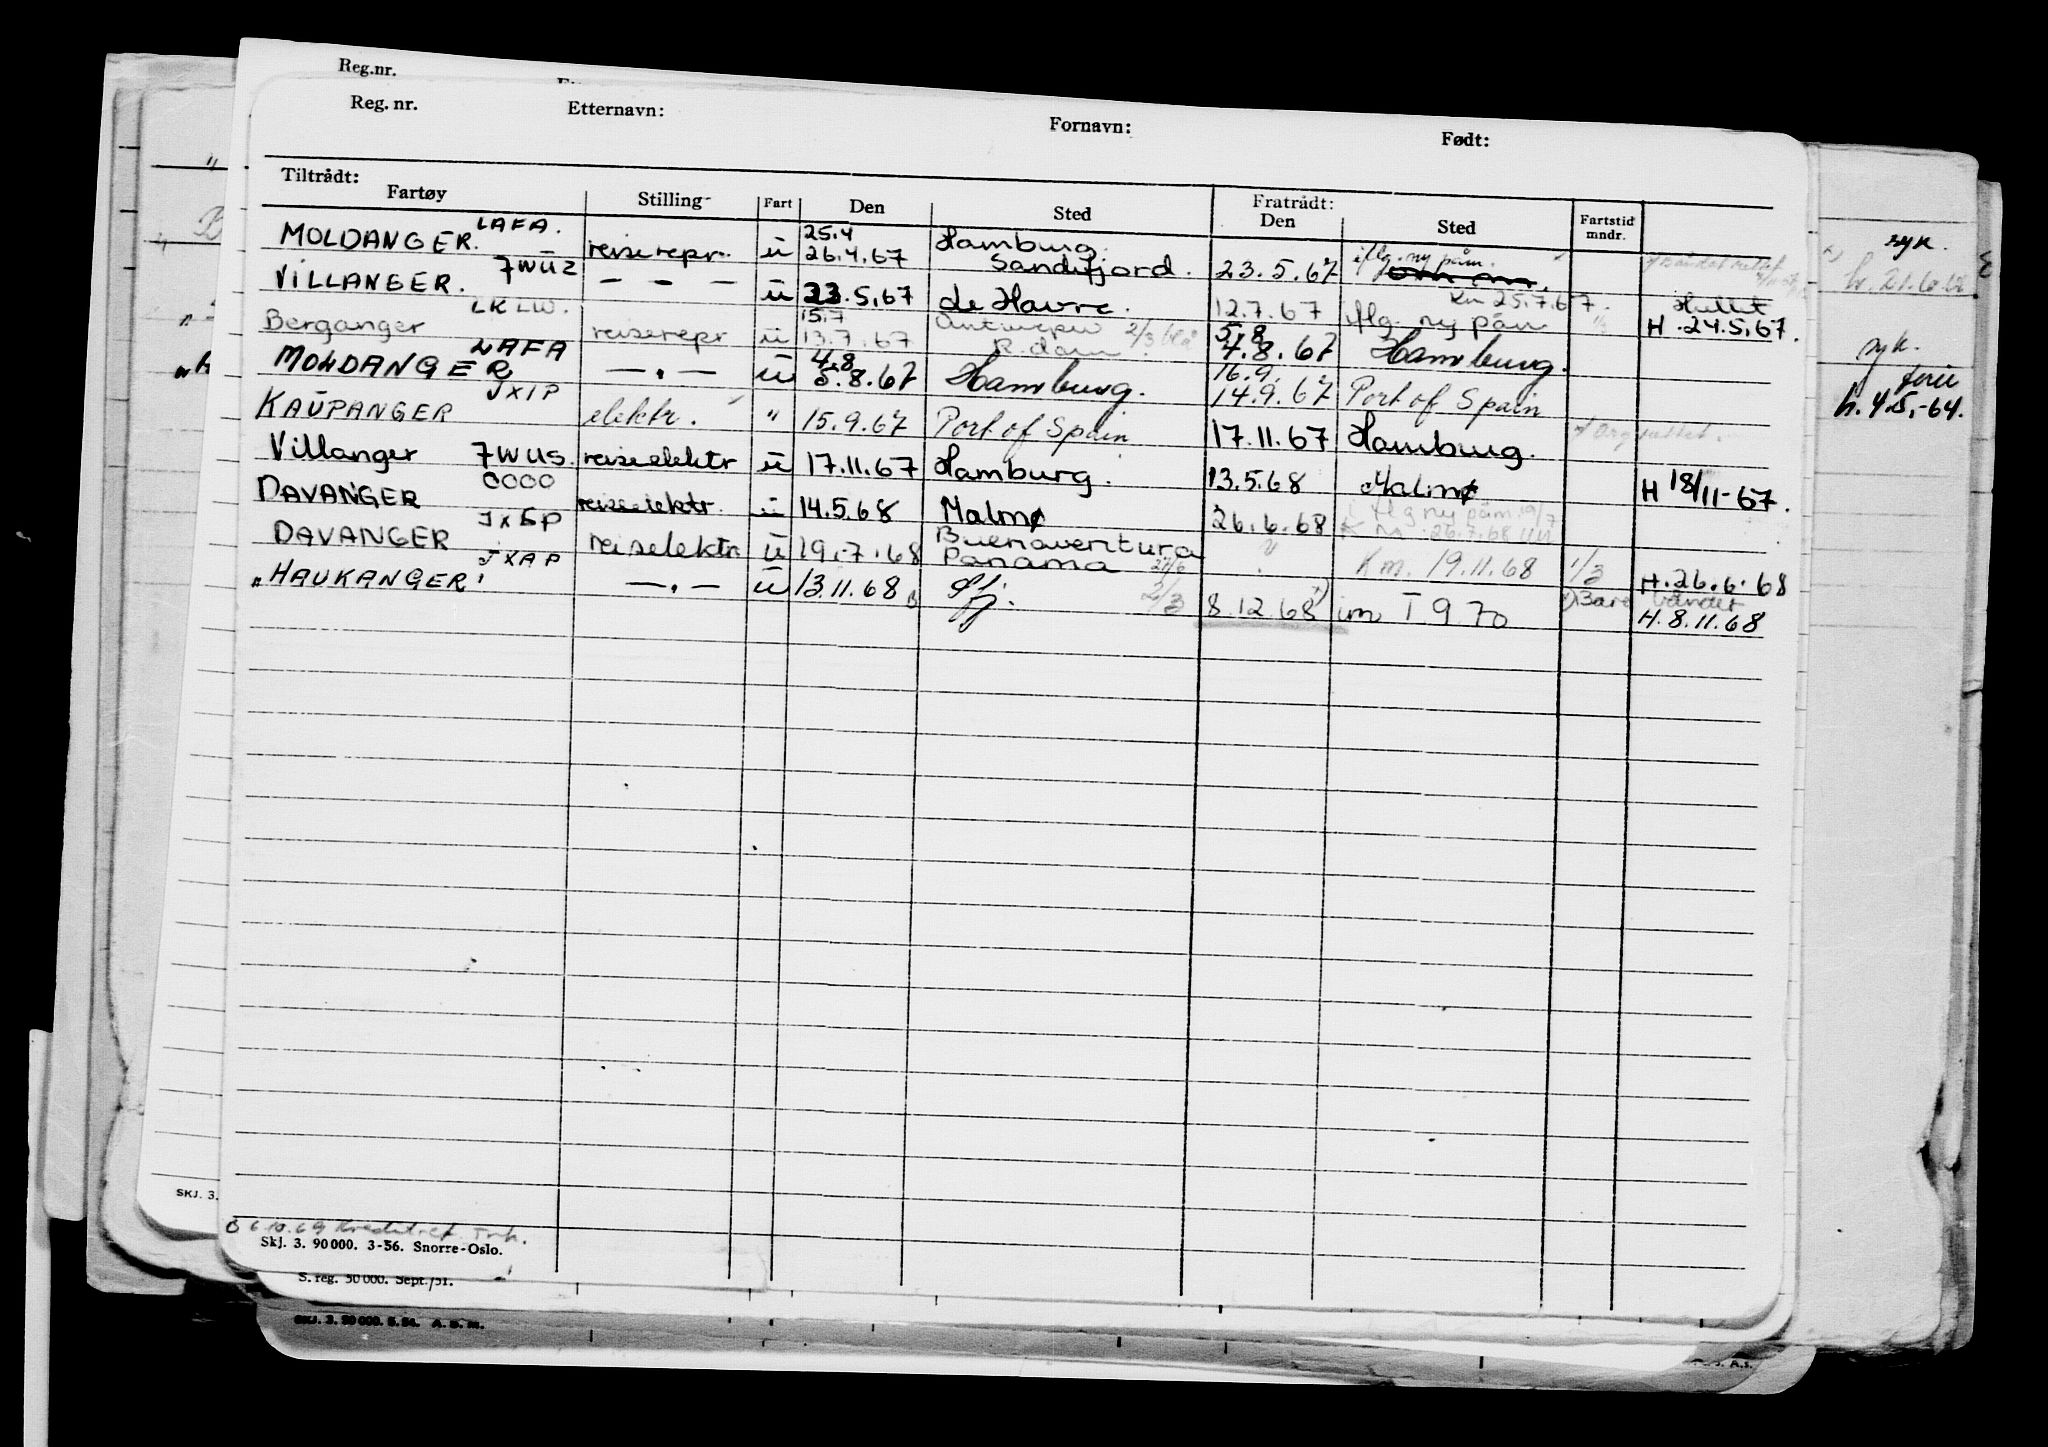 Reg.nr.
Reg. nr. Etternavn: Fornavn: Født:
Tiltrådt: Fratrådt:
Fartøy Stilling Fart Den Sted Den Sted Fartstid mndr.
LAFA. 25.4 Hamburg. iflg. ny påm.
MOLDANGER. reiserepr. ü 26.4.67 Sandefjord. 23.5.67
7WUZ Km 25.7.67. Hullet
VILLANGER. — - — ü 23.5.67 Le Havre. 12.7.67 iflg. ny påm H. 24.5.67.
LKLW. 15.7 Antwerpen 2/3 5.8
Berganger reiserepr ü 13.7.67 R.dam 4.8.67 Hamburg.
LAFA 4.8 16.9.
MOLDANGER — . — ü 5.8.67 Hamburg. 14.9.67 Port of Spain
JXIP
KAUPANGER elektr. " 15.9.67 Port of Spain 17.11.67 Hamburg.
Villanger 7WUS. reiseelektr ü 17.11.67 Hamburg. 13.5.68 Malmø H 18/11-67.
OOOO iflg ny påm. 19/7
DAVANGER reiseelektr. ü 14.5.68 Malmø 26.6.68 Km. 26.7.68
JXEP Buenaventura
DAVANGER reiselektr ü 19.7.68 Panama Km. 19.11.68 1/3 H. 26.6.68
JXAP Bare båndet
"HAUKANGER" — . — ü 13.11.68 Sfj. 2/3 8.12.68 im T 9 70 H. 8.11.68
syk.
syk.
h. 4.5.-64.
6.10.69
Skj. 3. 90 000. 3-56. Snorre-Oslo.
SKJ. 3.
S. reg. 50 000. Sept./51.
SKJ. 3. 90 000. 5.54. A. S. M.